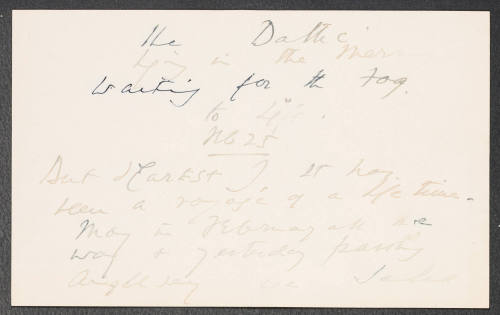 The Baltic
Lying in the Mersey
waiting for the Fog
to lift.
Feb 25
But dearest it has
been a voyage of a life time.
May in February all the
way & yesterday passing
Anglesey we